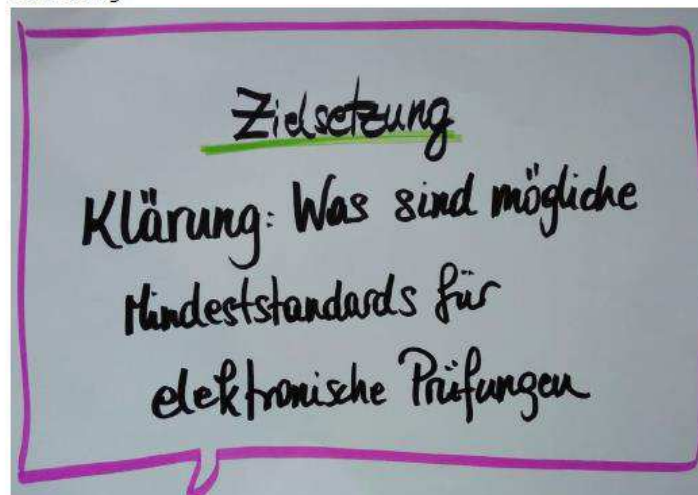 Zielsetzung
Klärung: Was sind mögliche
Mindeststandards für
elektronische Prüfungen